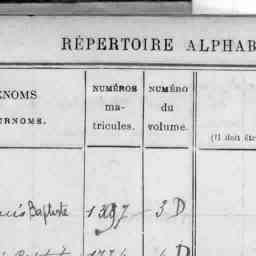 RÉPERTOIRE ALPHAB
ÉNOMS
URNOMS.
NUMÉROS
ma-
tricules.
NUMÉRO
du
volume.
(Il doit êtr
Baptiste 3 D